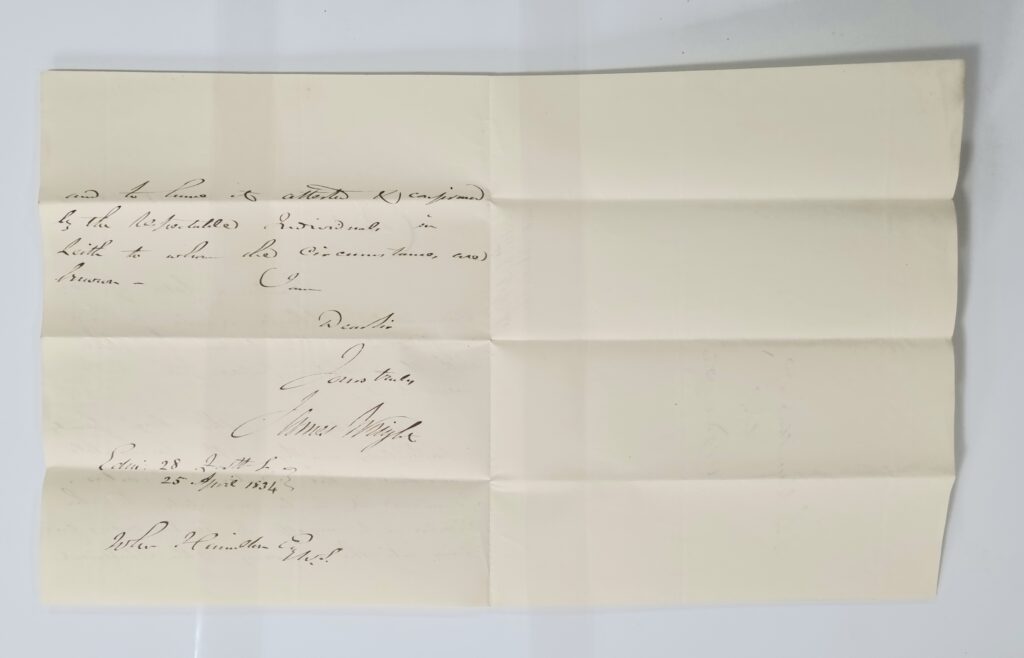 and to have it attested & confirmed
by the Respectable Individuals in
Leith to whom the circumstances are
known – I am
Dear Sir
Yours truly
James Wright
Edinr 28
25 April 1834
Hamilton Esqr
W.S.